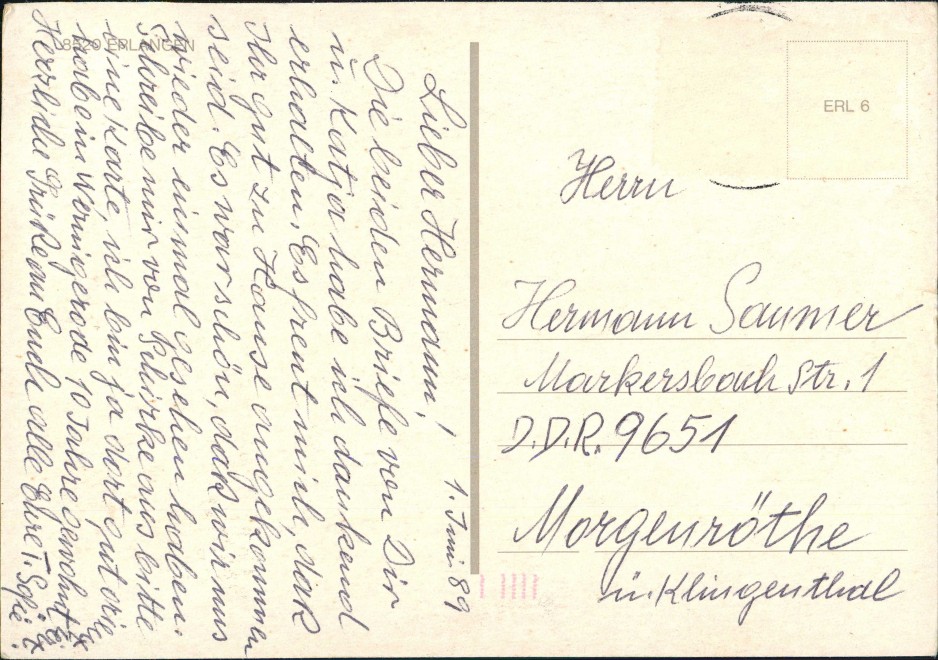 8520 ERLANGEN
1. Juni 89
Lieber Hermann,
Die beiden Briefe von Dir
u. Katja habe ich dankend
erhalten. Es freut mich, daß
Ihr gut zu Hause angekommen
seid. Es war schön, daß wir uns
wieder einmal gesehen haben.
Schreibe mir von Schirke aus bitte
eine Karte, ich bin ja dort, hat
habe in Wernigerode 10 Jahre gewohnt
Herzliche Grüße an Euch alle Eure T. Sofie
ERL 6
Herrn
Hermann Saumer
Markersbach Str. 1
D.D.R. 9651
Morgenröthe
ü. Klingenthal